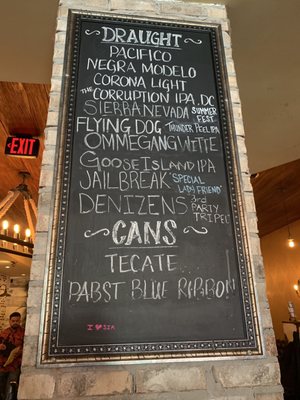 DRAUGHT
PACIFICO
NEGRA MODELO
CORONA LIGHT
THE CORRUPTION IPA, DC
SIERRA NEVADA SUMMER FEST
FLYING DOG THUNDER PEEL IPA
OMMEGANG WITTE
GOOSE ISLAND IPA
JAILBREAK "SPECIAL LADY FRIEND"
DENIZENS 3rd PARTY TRIPEL
CANS
TECATE
PABST BLUE RIBBON
I ♥
EXIT